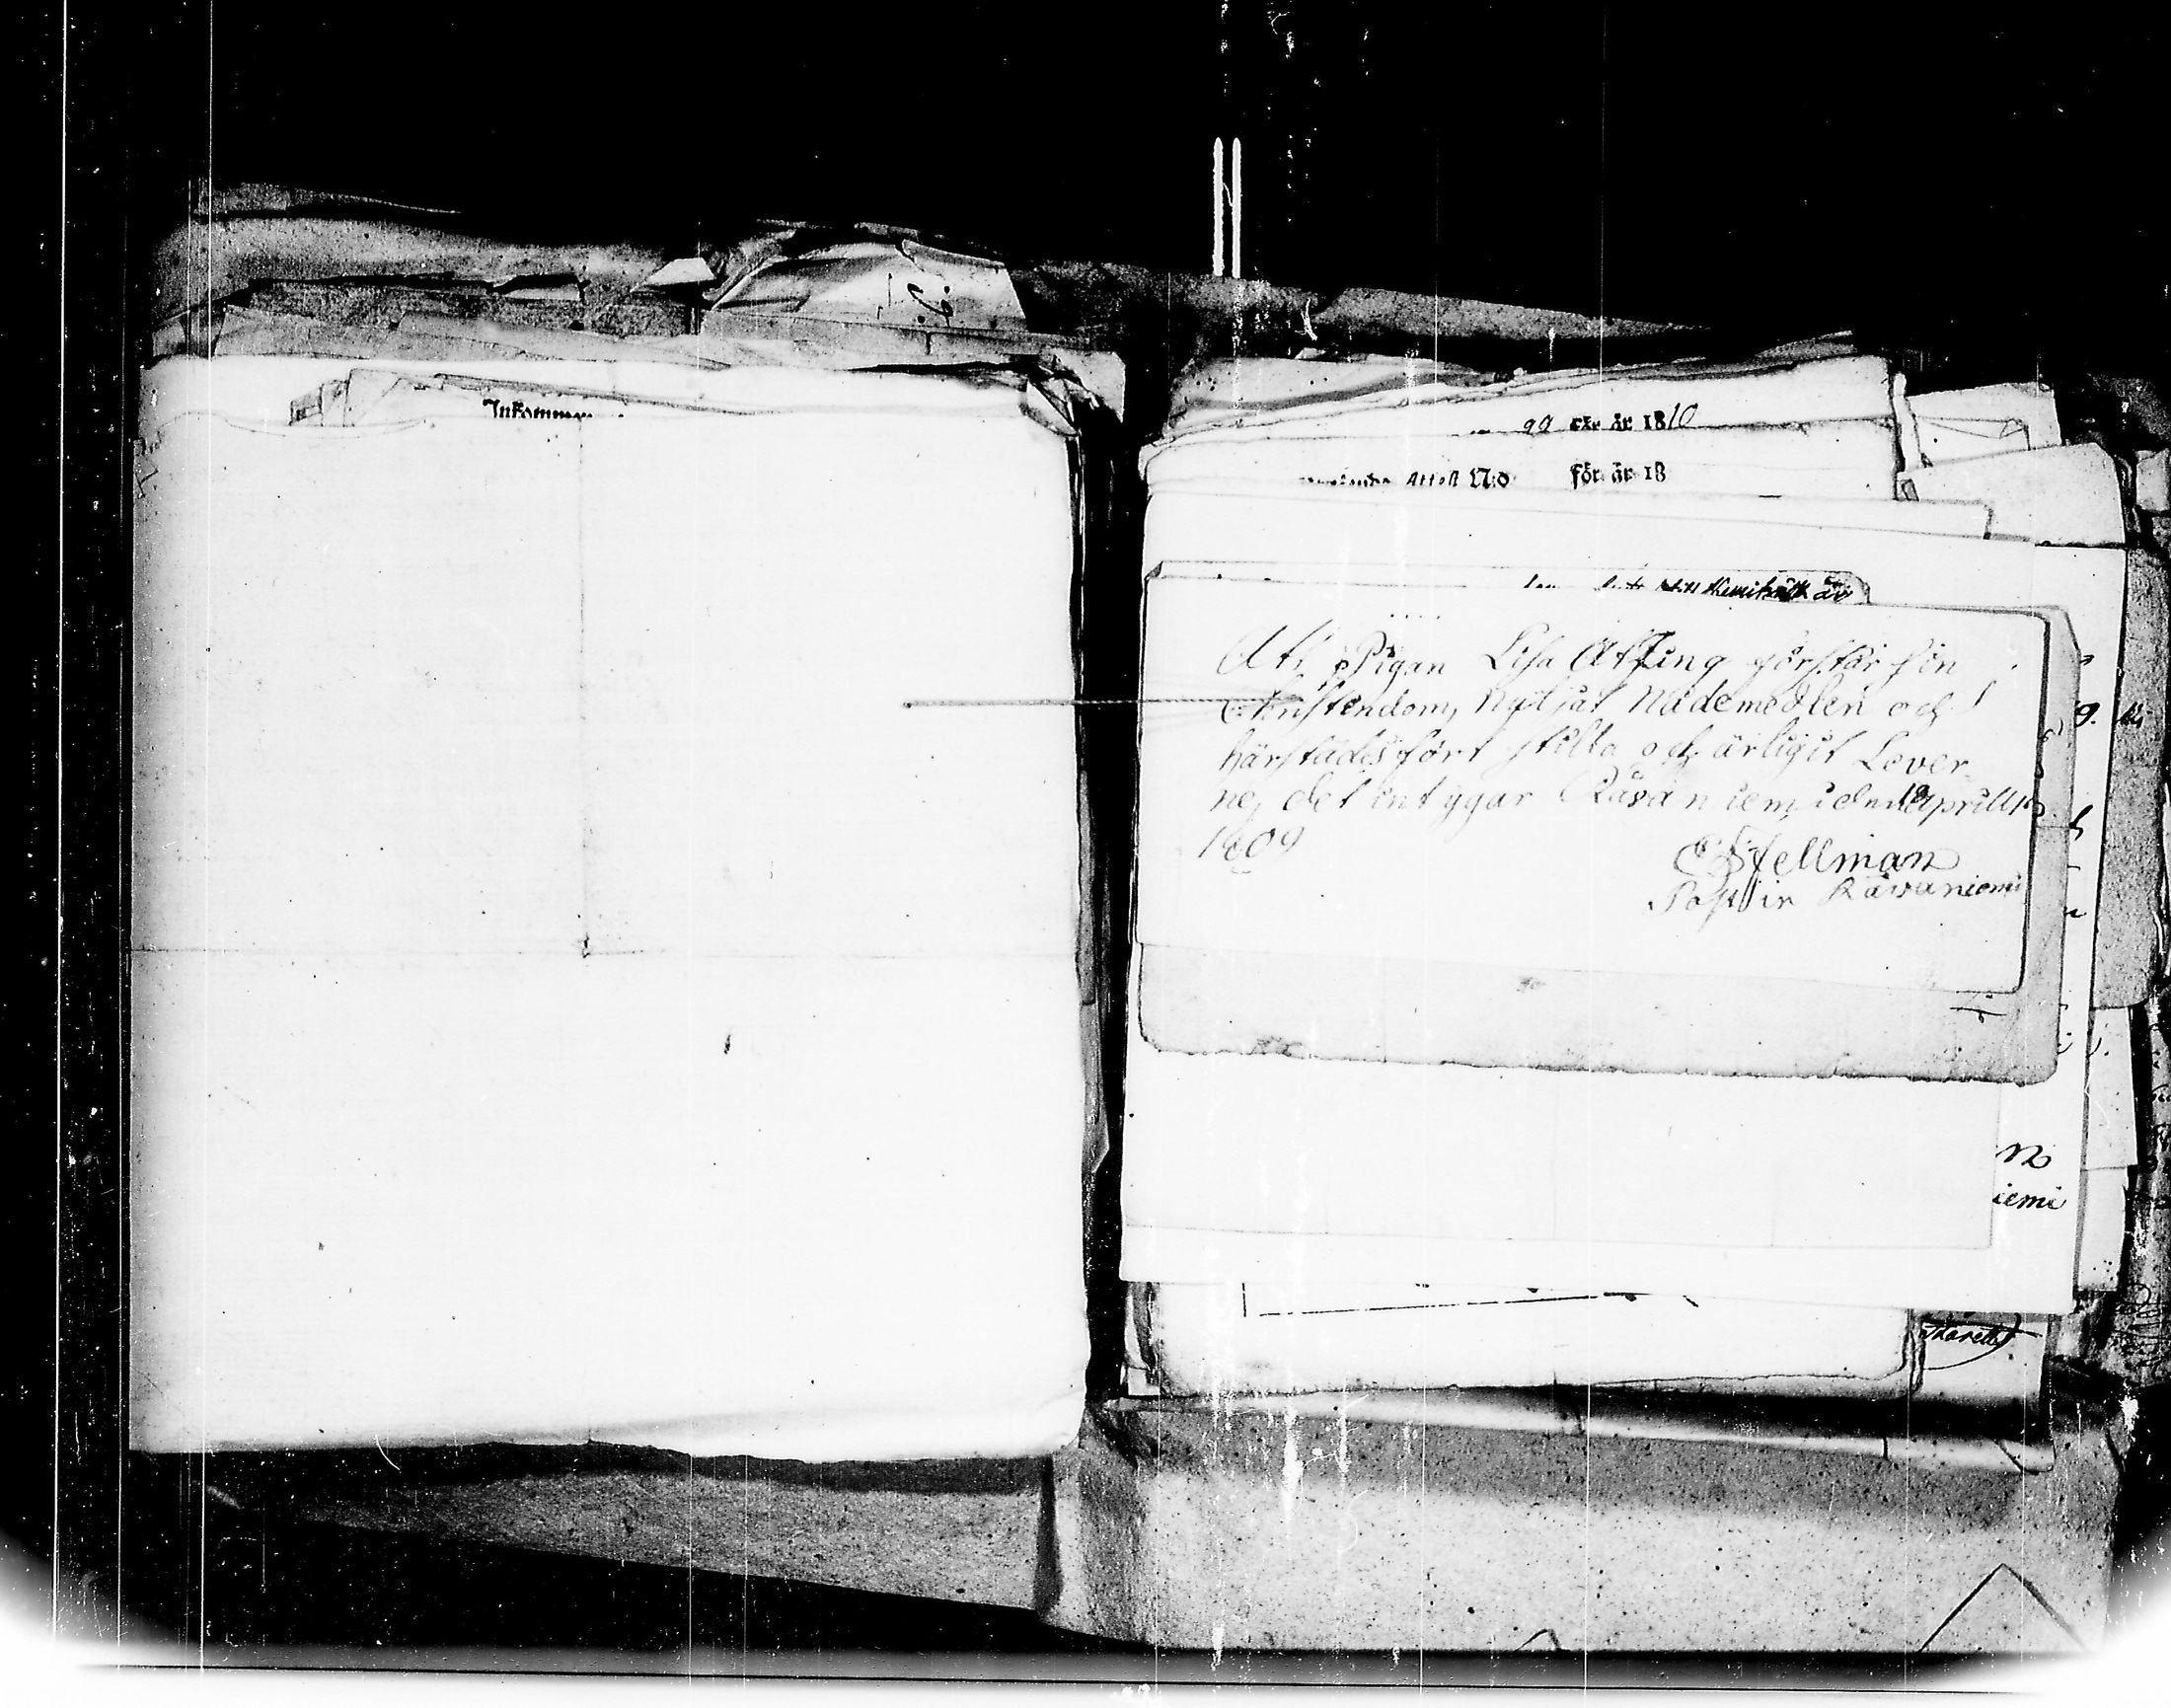 Inkommen
99 för år 1810
Attest N:o för år 18
till Kemiträsk är
Att Pigan Lisa Atting förstår sin
Christendom, nyttjat Nådemedlen och
härstädes fört stilla och ärligit Lever-
ne, det intygar Råvaniemi den 18 Aprill
1809
Stellman
Past. in Råvaniemi
iemi